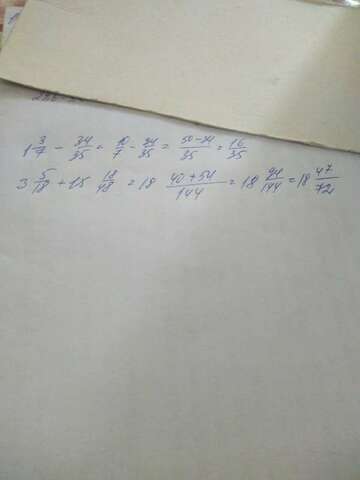 1 3/7 - 34/35 = 10/7 - 34/35 = 50-34/35 = 16/35
3 5/18 + 15 18/48 = 18 40+54/144 = 18 94/144 = 18 47/72